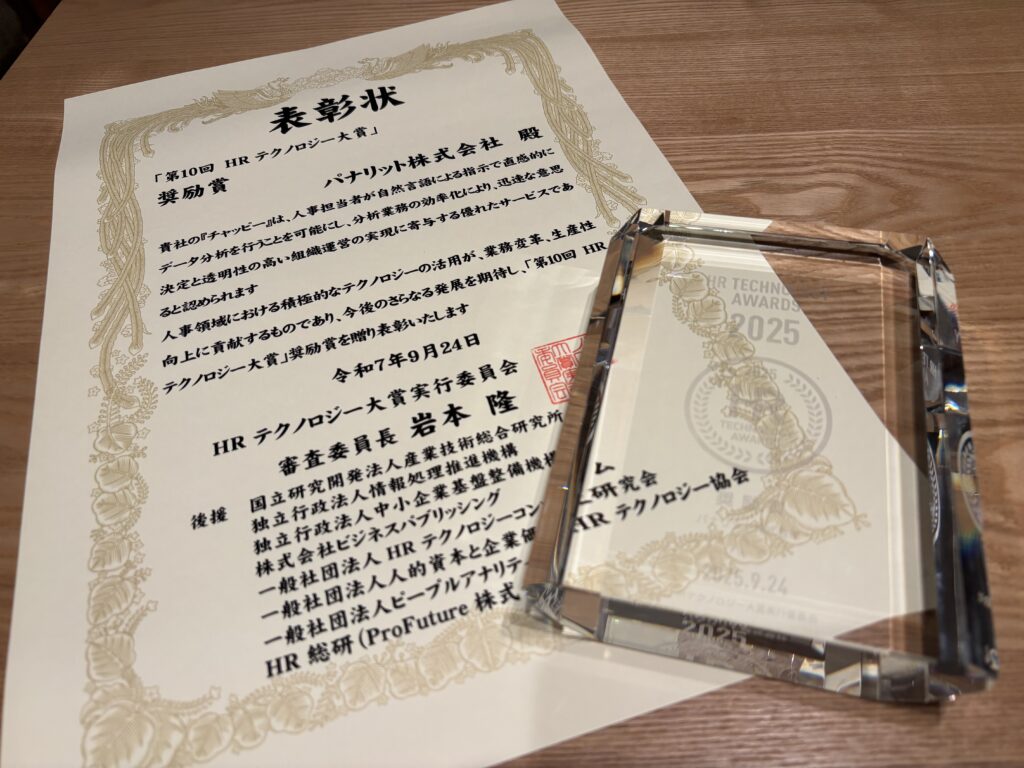 表彰状
「第10回 HR テクノロジー大賞」
奨励賞
パナリット株式会社 殿
貴社の『チャッピー』は、人事担当者が自然言語による指示で直感的に
データ分析を行うことを可能にし、分析業務の効率化により、迅速な意思
決定と透明性の高い組織運営の実現に寄与する優れたサービスであ
ると認められます
人事領域における積極的なテクノロジーの活用が、業務変革、生産性
向上に貢献するものであり、今後のさらなる発展を期待し、「第10回 HR
テクノロジー大賞」奨励賞を贈り表彰いたします
令和7年9月24日
HR テクノロジー大賞実行委員会
審査委員長 岩本 隆
後援 国立研究開発法人産業技術総合研究所
独立行政法人情報処理推進機構
独立行政法人中小企業基盤整備機構
株式会社ビジネスパブリッシング
一般社団法人 HR テクノロジーコン
一般社団法人人的資本と企業価 研究会
一般社団法人ピープルアナリテ HR テクノロジー協会
HR 総研 (ProFuture 株式
HR TECHNOLOGY
AWARDS
2025
2025.9.24
2025